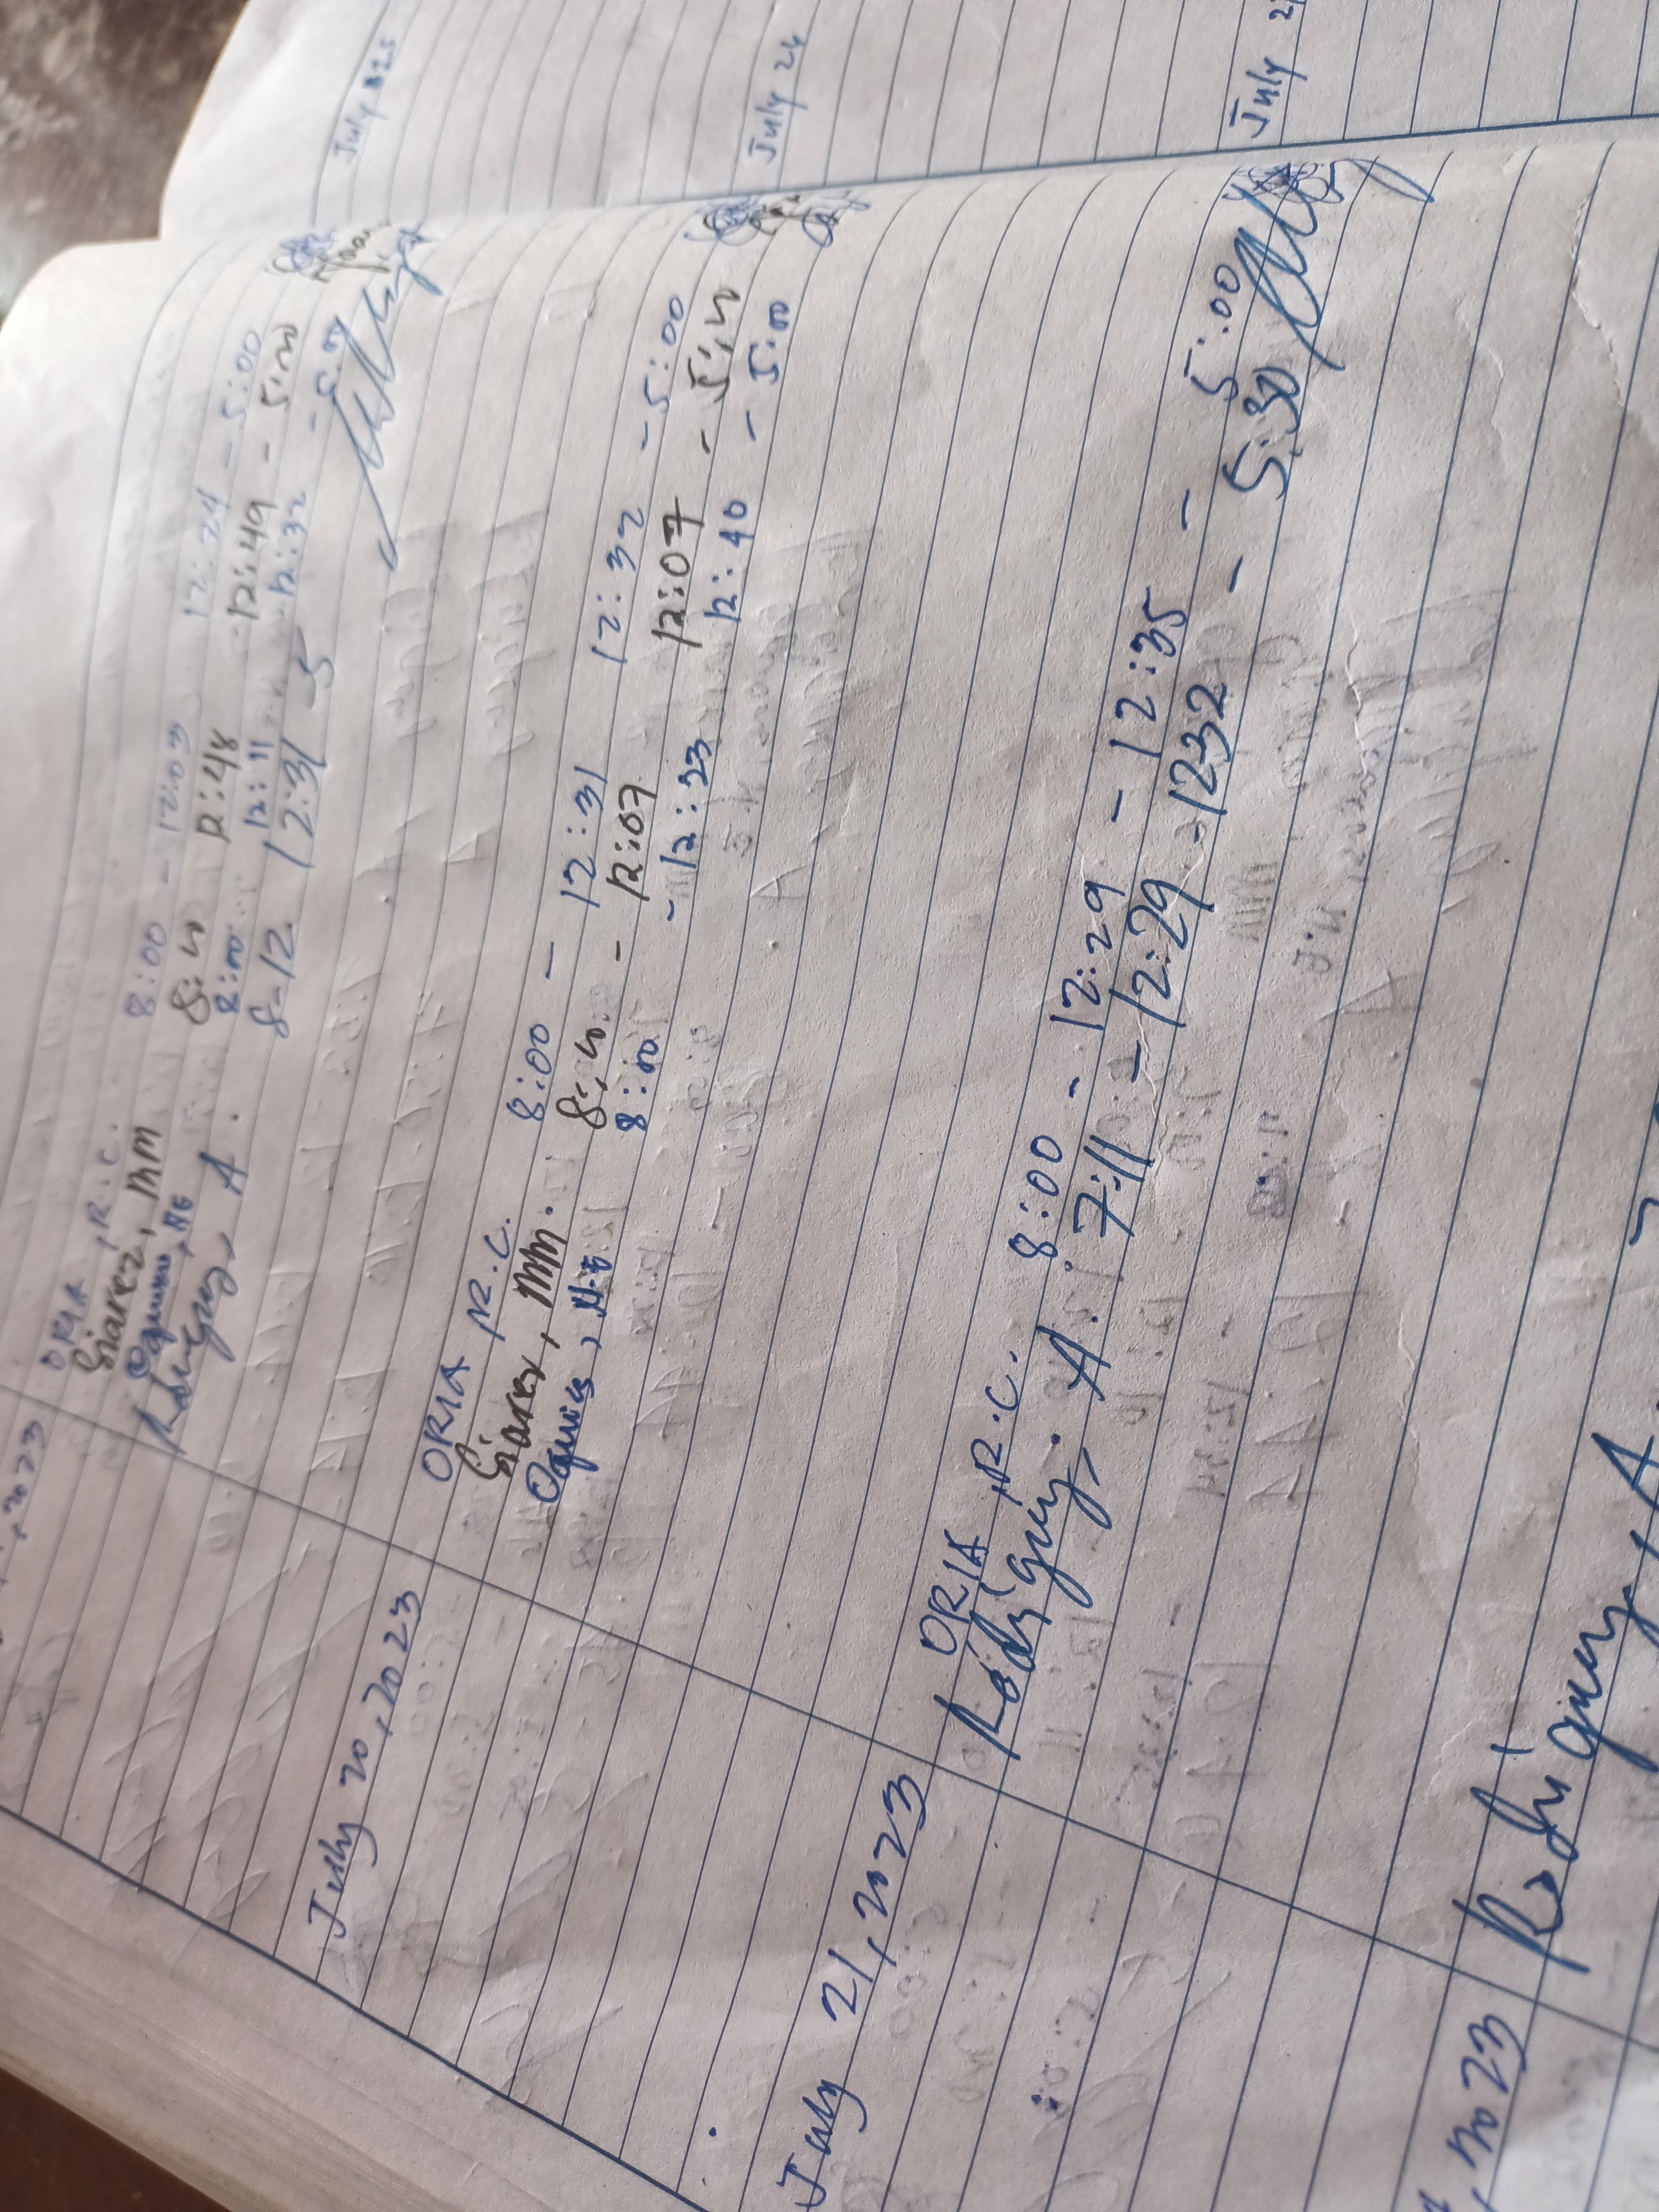 , 2023
ORIA, R.C. 8:00 - 12:03 12:24 - 5:00
Siarez, MM 8:00 12:48 12:49 - 5:00
8:00 12:11 12:32 - 5:00
A. 8-12 12:31 5
July 20, 2023
ORIA, R.C. 8:00 - 12:31 12:32 - 5:00
Siarez, MM. 8:00 - 12:07 12:07 - 5:00
8:00 - 12:23 12:40 - 5:00
July 21, 2023
ORIA, R.C. 8:00 - 12:29 - 12:35 - 5:00
Rodriguez, A. 7:11 - 12:29 - 1232 - 5:30
2023
Rodriguez, A.
July 25
July 24
July